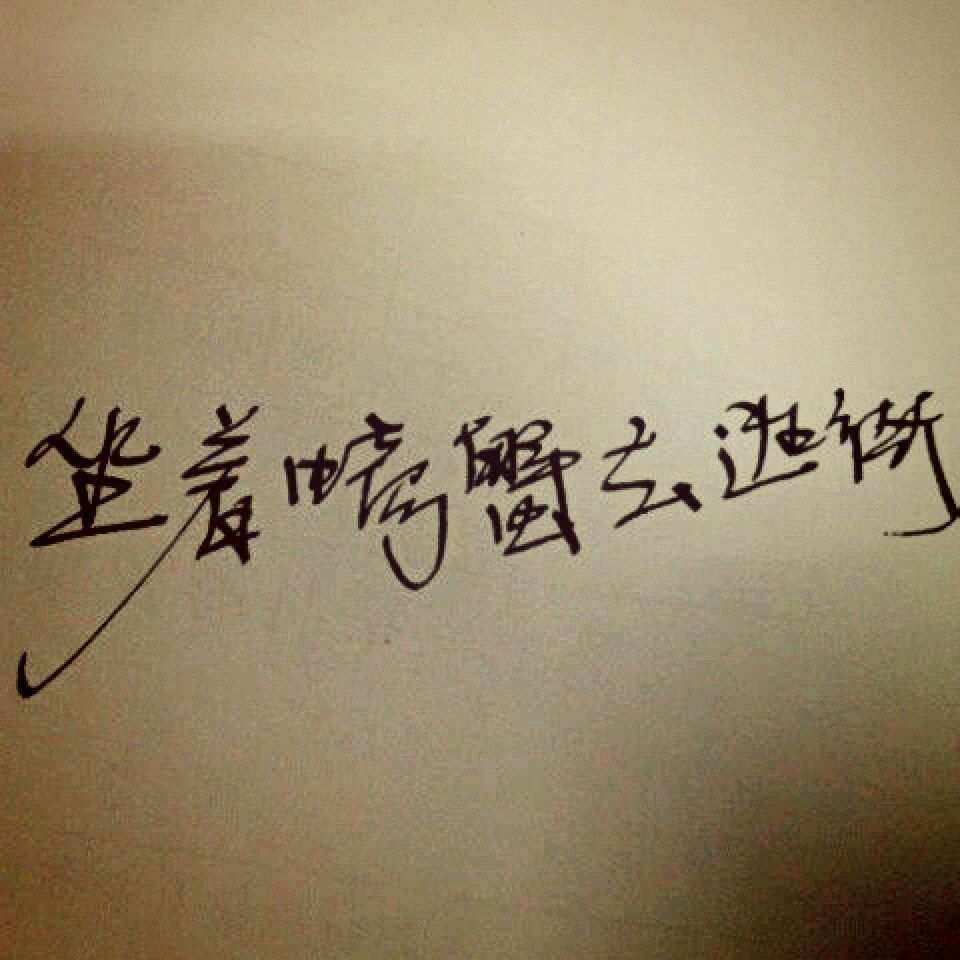 坐着螃蟹去逛街